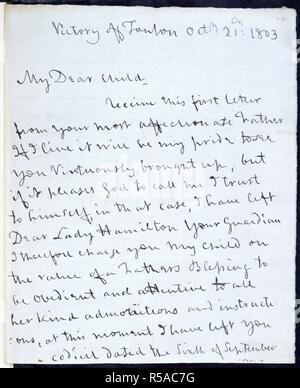 Victory off Toulon Octr. 21st: 1803
My Dear Child
Receive this first letter
from your most affectionate Father
If I live it will be my pride to see
you Virtuously brought up, but
if it pleases God to call me I trust
to himself, in that case, I have left
Dear Lady Hamilton Your Guardian
I therefore charge you My Child on
the value of a Fathers Blessing to
be obedient and attentive to all
her kind admonitions and instructi
ons, at this moment I have left You
a codicil dated the Sixth of September
alamy
R5AC7G